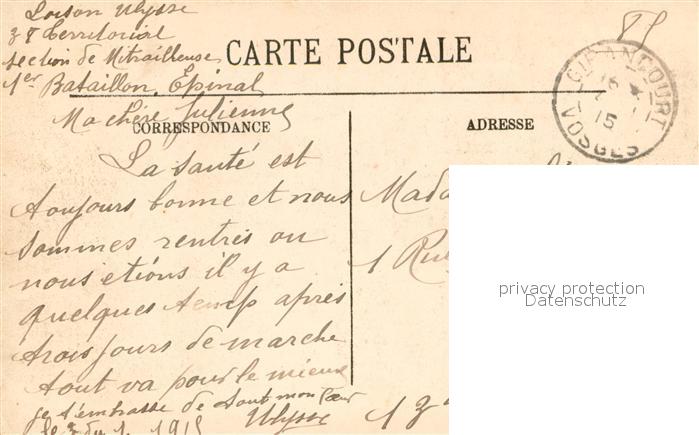 Loison Ulysse
37 Territorial
section de Mitrailleuse
1er Bataillon Epinal
CARTE POSTALE
GIRANCOURT
VOSGES
15
Ma chère Julienne
CORRESPONDANCE
La santé est
toujours bonne et nous
sommes rentrés ou
nous etions il y a
quelques temps après
trois jours de marche
tout va pour le mieux
je t'embrasse de tout mon Cœur
Ulysse
le 3 du 1. 1915
ADRESSE
Mada
1 Rue
13
privacy protection
Datenschutz